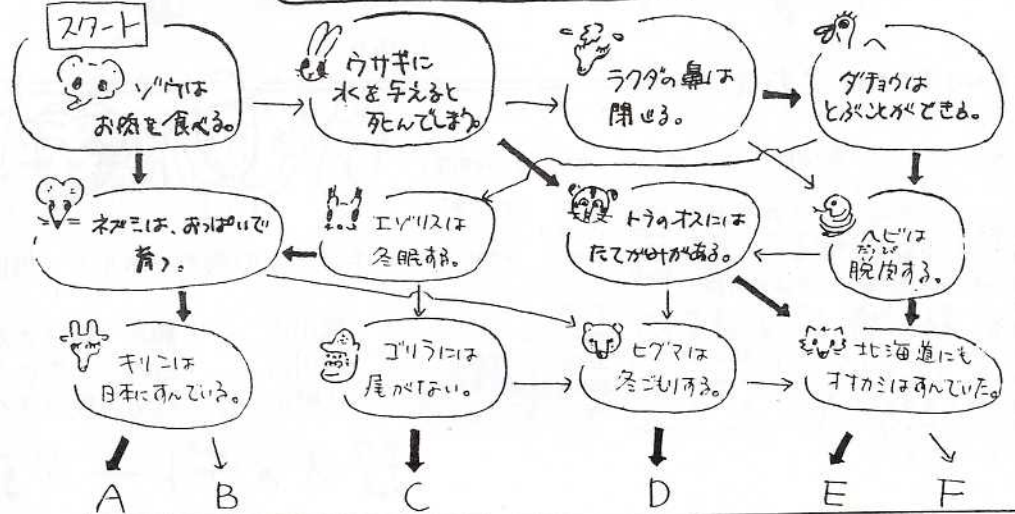 スタート
ゾウは
お肉を食べる。
ウサギに
水を与えると
死んでしまう。
ラクダの鼻は
閉じる。
ダチョウは
とぶことができる。
ネズミは、おっぱいで
育つ。
エゾリスは
冬眠する。
トラのオスには
たてがみがある。
ヘビは
だっぴ
脱皮する。
キリンは
日本にすんでいる。
ゴリラには
尾がない。
ヒグマは
冬ごもりする。
北海道にも
オオカミはすんでいた。
A
B
C
D
E
F